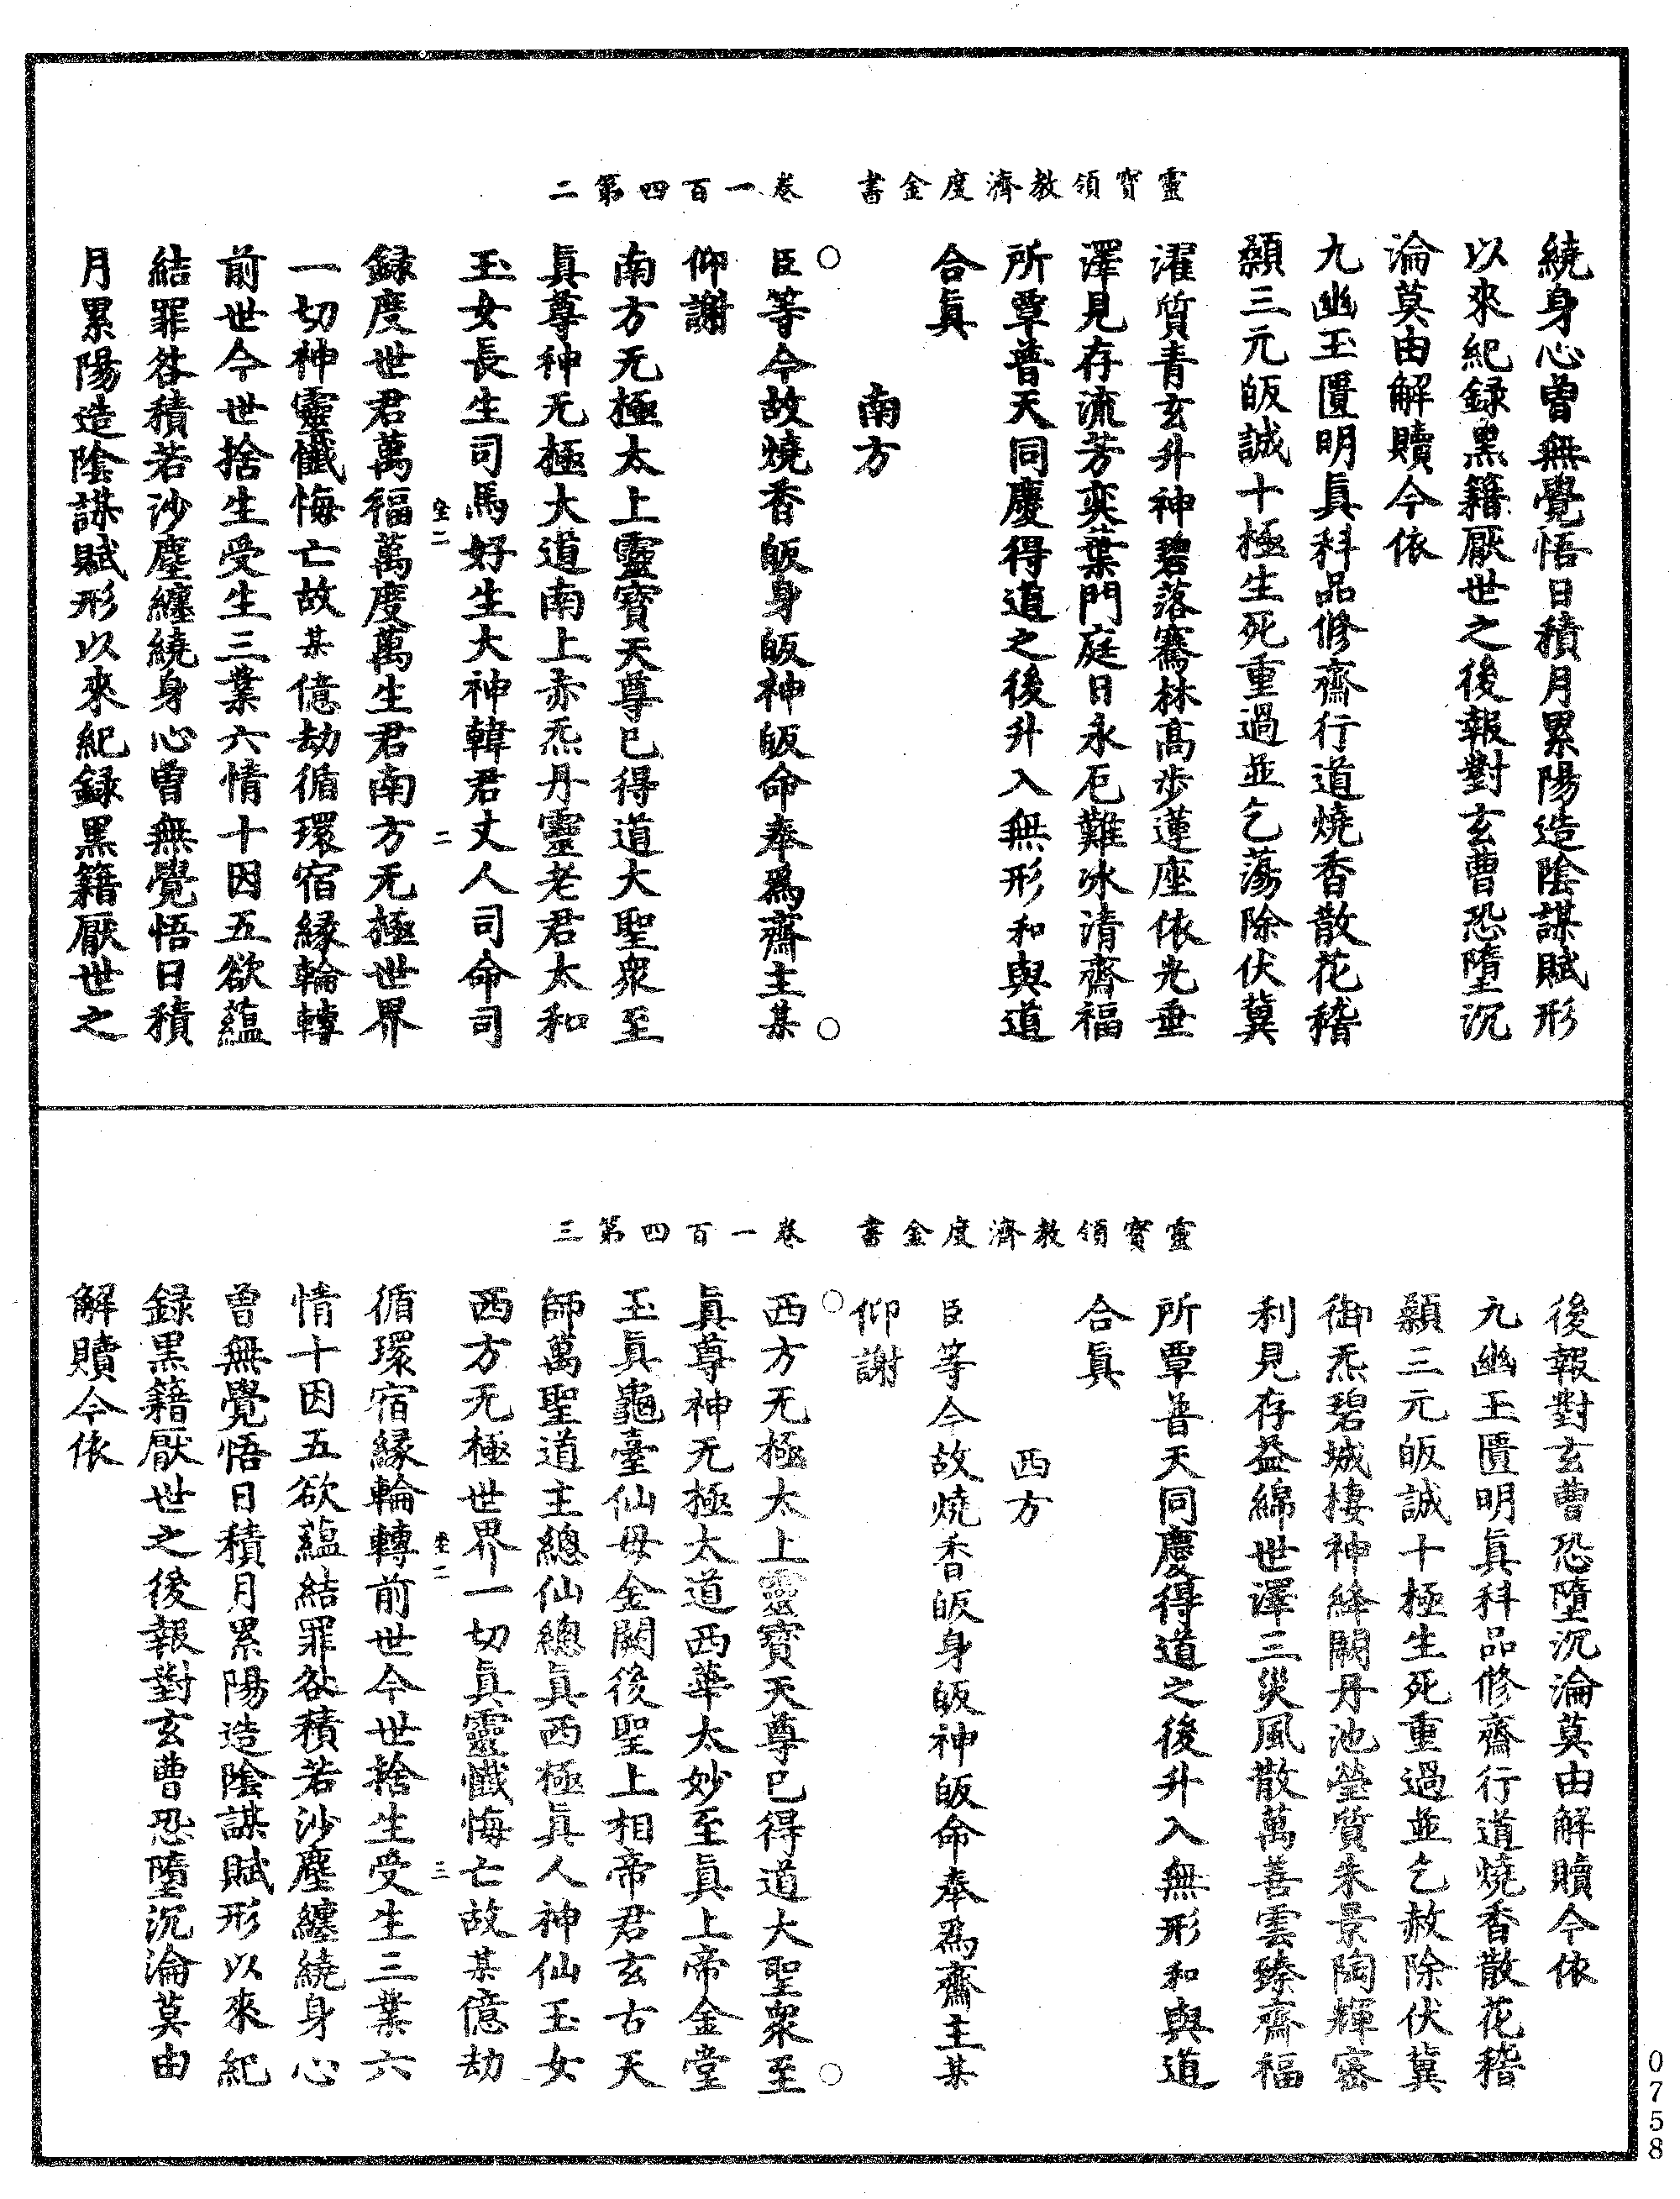 靈寶領教濟度金書　卷一百四第二
繞身心曾無覺悟日積月累陽造陰謀賦形
以來紀録黑籍厭世之後報對玄曹恐墮沉
淪莫由解贖今依
九幽玉匱明眞科品修齋行道燒香散花稽
顙三元皈誠十極生死重過並乞蕩除伏冀
濯質青玄升神碧落騫林高歩蓮座依光垂
澤見存流芳奕葉門庭日永厄難冰清齋福
所覃普天同慶得道之後升入無形和與道
合眞
南方
臣等今故燒香皈身皈神皈命奉爲齋主某
仰謝
南方无極太上靈寶天尊已得道大聖衆至
眞尊神无極大道南上赤炁丹靈老君太和
玉女長生司馬好生大神韓君丈人司命司
録度世君萬福萬度萬生君南方无極世界
一切神靈懺悔亡故某億劫循環宿緣輪轉
前世今世捨生受生三業六情十因五欲蘊
結罪咎積若沙塵纏繞身心曾無覺悟日積
月累陽造陰謀賦形以來紀録黑籍厭世之
二
靈寶領教濟度金書　卷一百四第三
後報對玄曹恐墮沉淪莫由解贖今依
九幽玉匱明眞科品修齋行道燒香散花稽
顙三元皈誠十極生死重過並乞赦除伏冀
御炁碧城棲神絳闕丹池瑩質朱景陶輝密
利見存益綿世澤三災風散萬善雲臻齋福
所覃普天同慶得道之後升入無形和與道
合眞
西方
臣等今故燒香皈身皈神皈命奉爲齋主某
仰謝
西方无極太上靈寶天尊已得道大聖衆至
眞尊神无極太道西華太妙至眞上帝金堂
玉眞龜臺仙母金闕後聖上相帝君玄古天
師萬聖道主總仙總眞西極眞人神仙玉女
西方无極世界一切眞靈懺悔亡故某億劫
循環宿緣輪轉前世今世捨生受生三業六
情十因五欲蘊結罪咎積若沙塵纏繞身心
曾無覺悟日積月累陽造陰謀賦形以來紀
録黑籍厭世之後報對玄曹恐墮沉淪莫由
解贖今依
三
0758